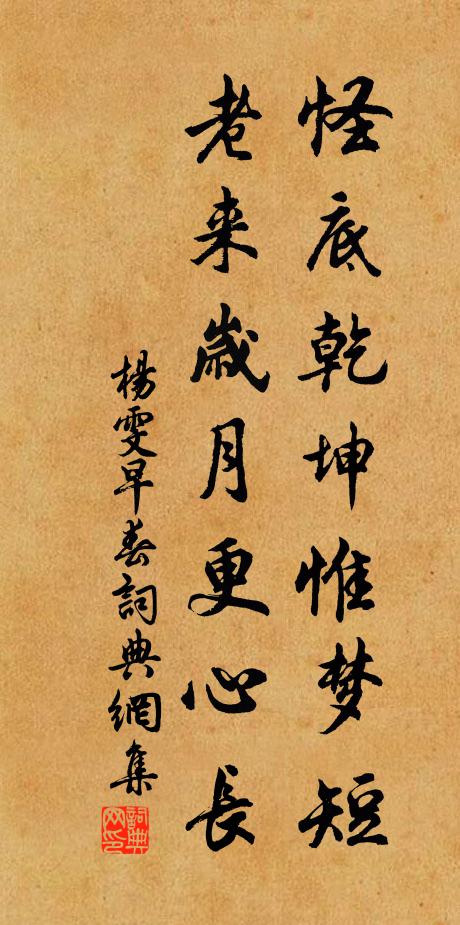 怪底乾坤惟梦短
老来歳月更心長
楊雯早春詞典網集
詞典网印